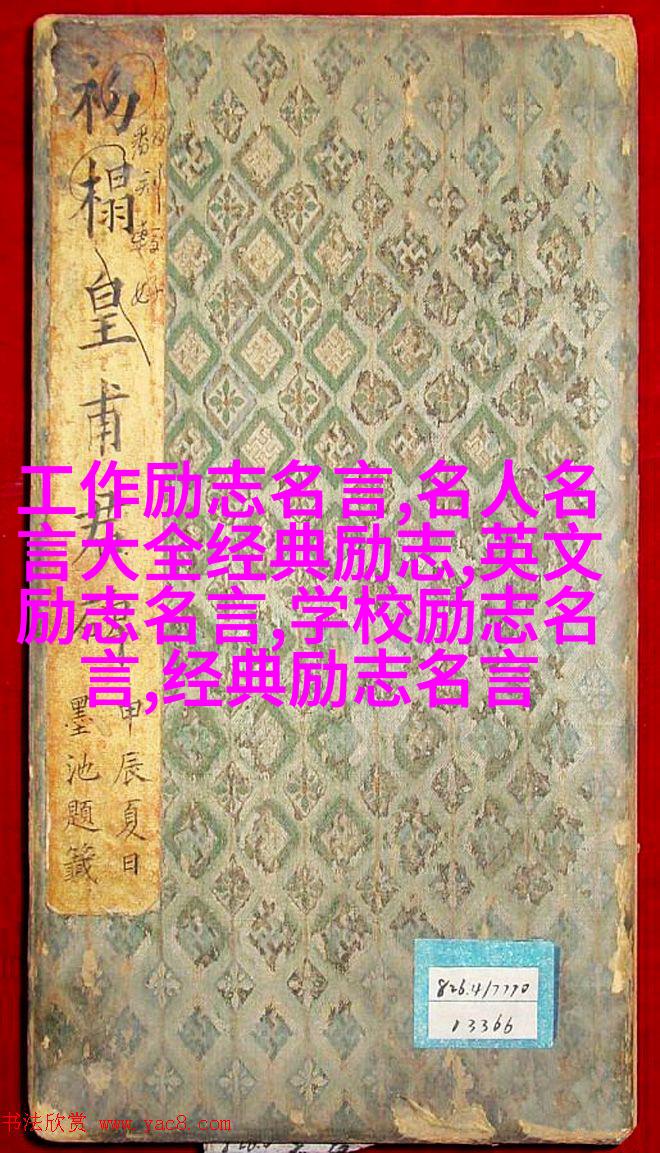 初榻皇甫君碑
甲辰夏日
墨池題籤
工作励志名言,名人名
言大全经典励志,英文
励志名言,学校励志名
言,经典励志名言
826.4/7770
13366
书法欣赏 www.yac8.com